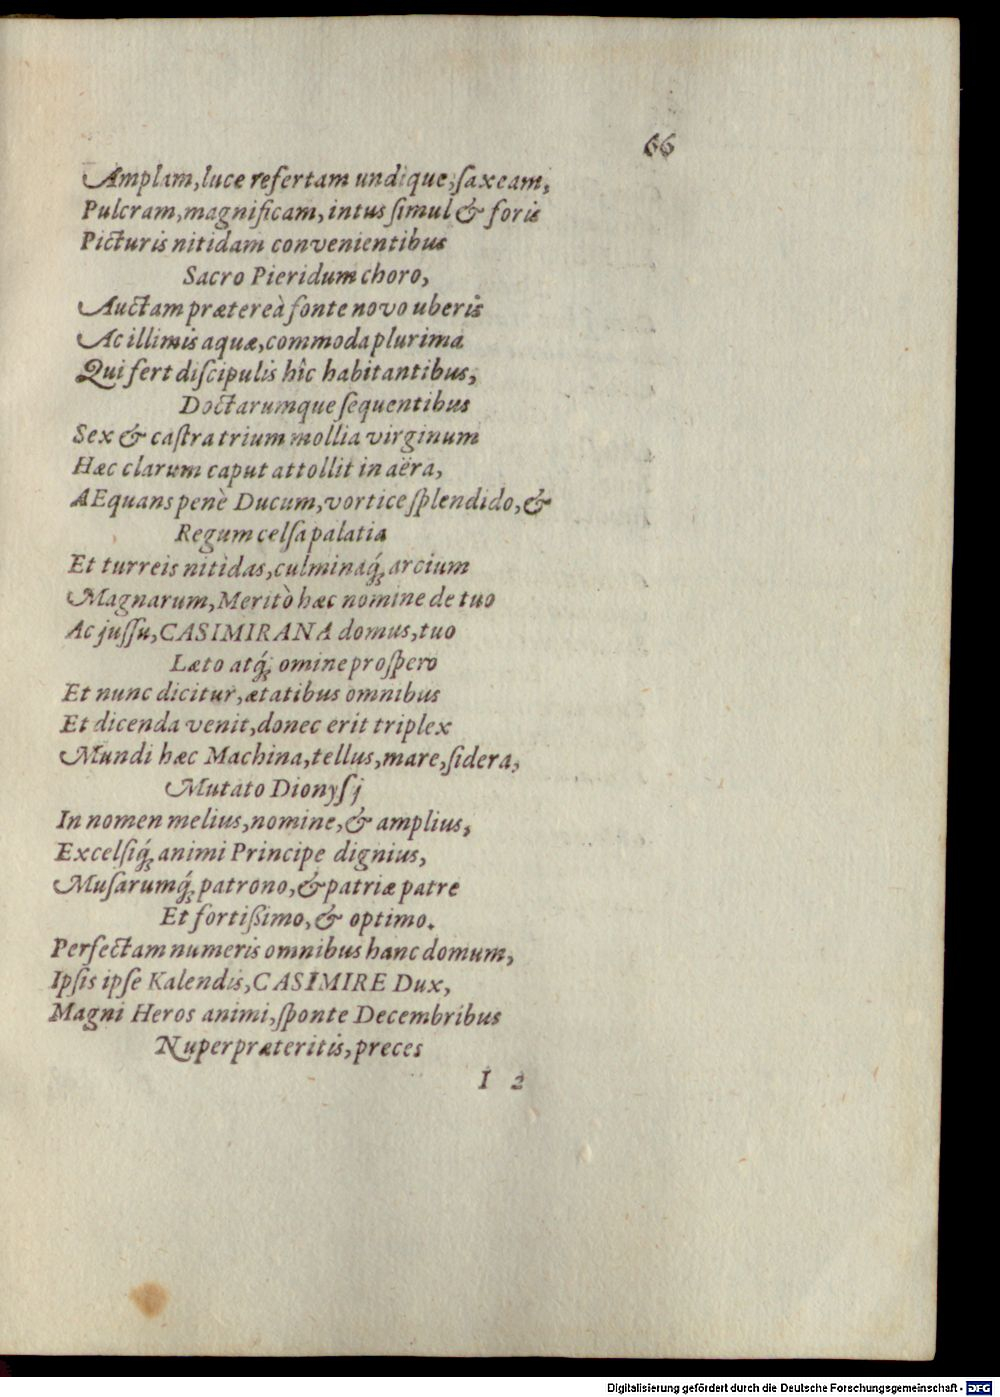 66
Amplam, luce refertam undique, ſaxeam,
Pulcram, magnificam, intus ſimul & foris
Picturis nitidam convenientibus
Sacro Pieridum choro,
Auctam prætereà fonte novo uberis
Ac illimis aquæ, commoda plurima
Qui fert diſcipulis hîc habitantibus,
Doctarumque ſequentibus
Sex & caſtra trium mollia virginum
Hæc clarum caput attollit in aëra,
AEquans penè Ducum, vortice ſplendido, &
Regum celſa palatia
Et turreis nitidas, culminaq́; arcium
Magnarum, Meritò hæc nomine de tuo
Ac juſſu, CASIMIRANA domus, tuo
Læto atq́; omine proſpero
Et nunc dicitur, ætatibus omnibus
Et dicenda venit, donec erit triplex
Mundi hæc Machina, tellus, mare, ſidera,
Mutato Dionyſj
In nomen melius, nomine, & amplius,
Excelſiq́; animi Principe dignius,
Muſarumq́; patrono, & patriæ patre
Et fortißimo, & optimo.
Perfectam numeris omnibus hanc domum,
Ipſis ipſe Kalendis, CASIMIRE Dux,
Magni Heros animi, ſponte Decembribus
Nuper præteritis, preces
I 2
Digitalisierung gefördert durch die Deutsche Forschungsgemeinschaft - DFG